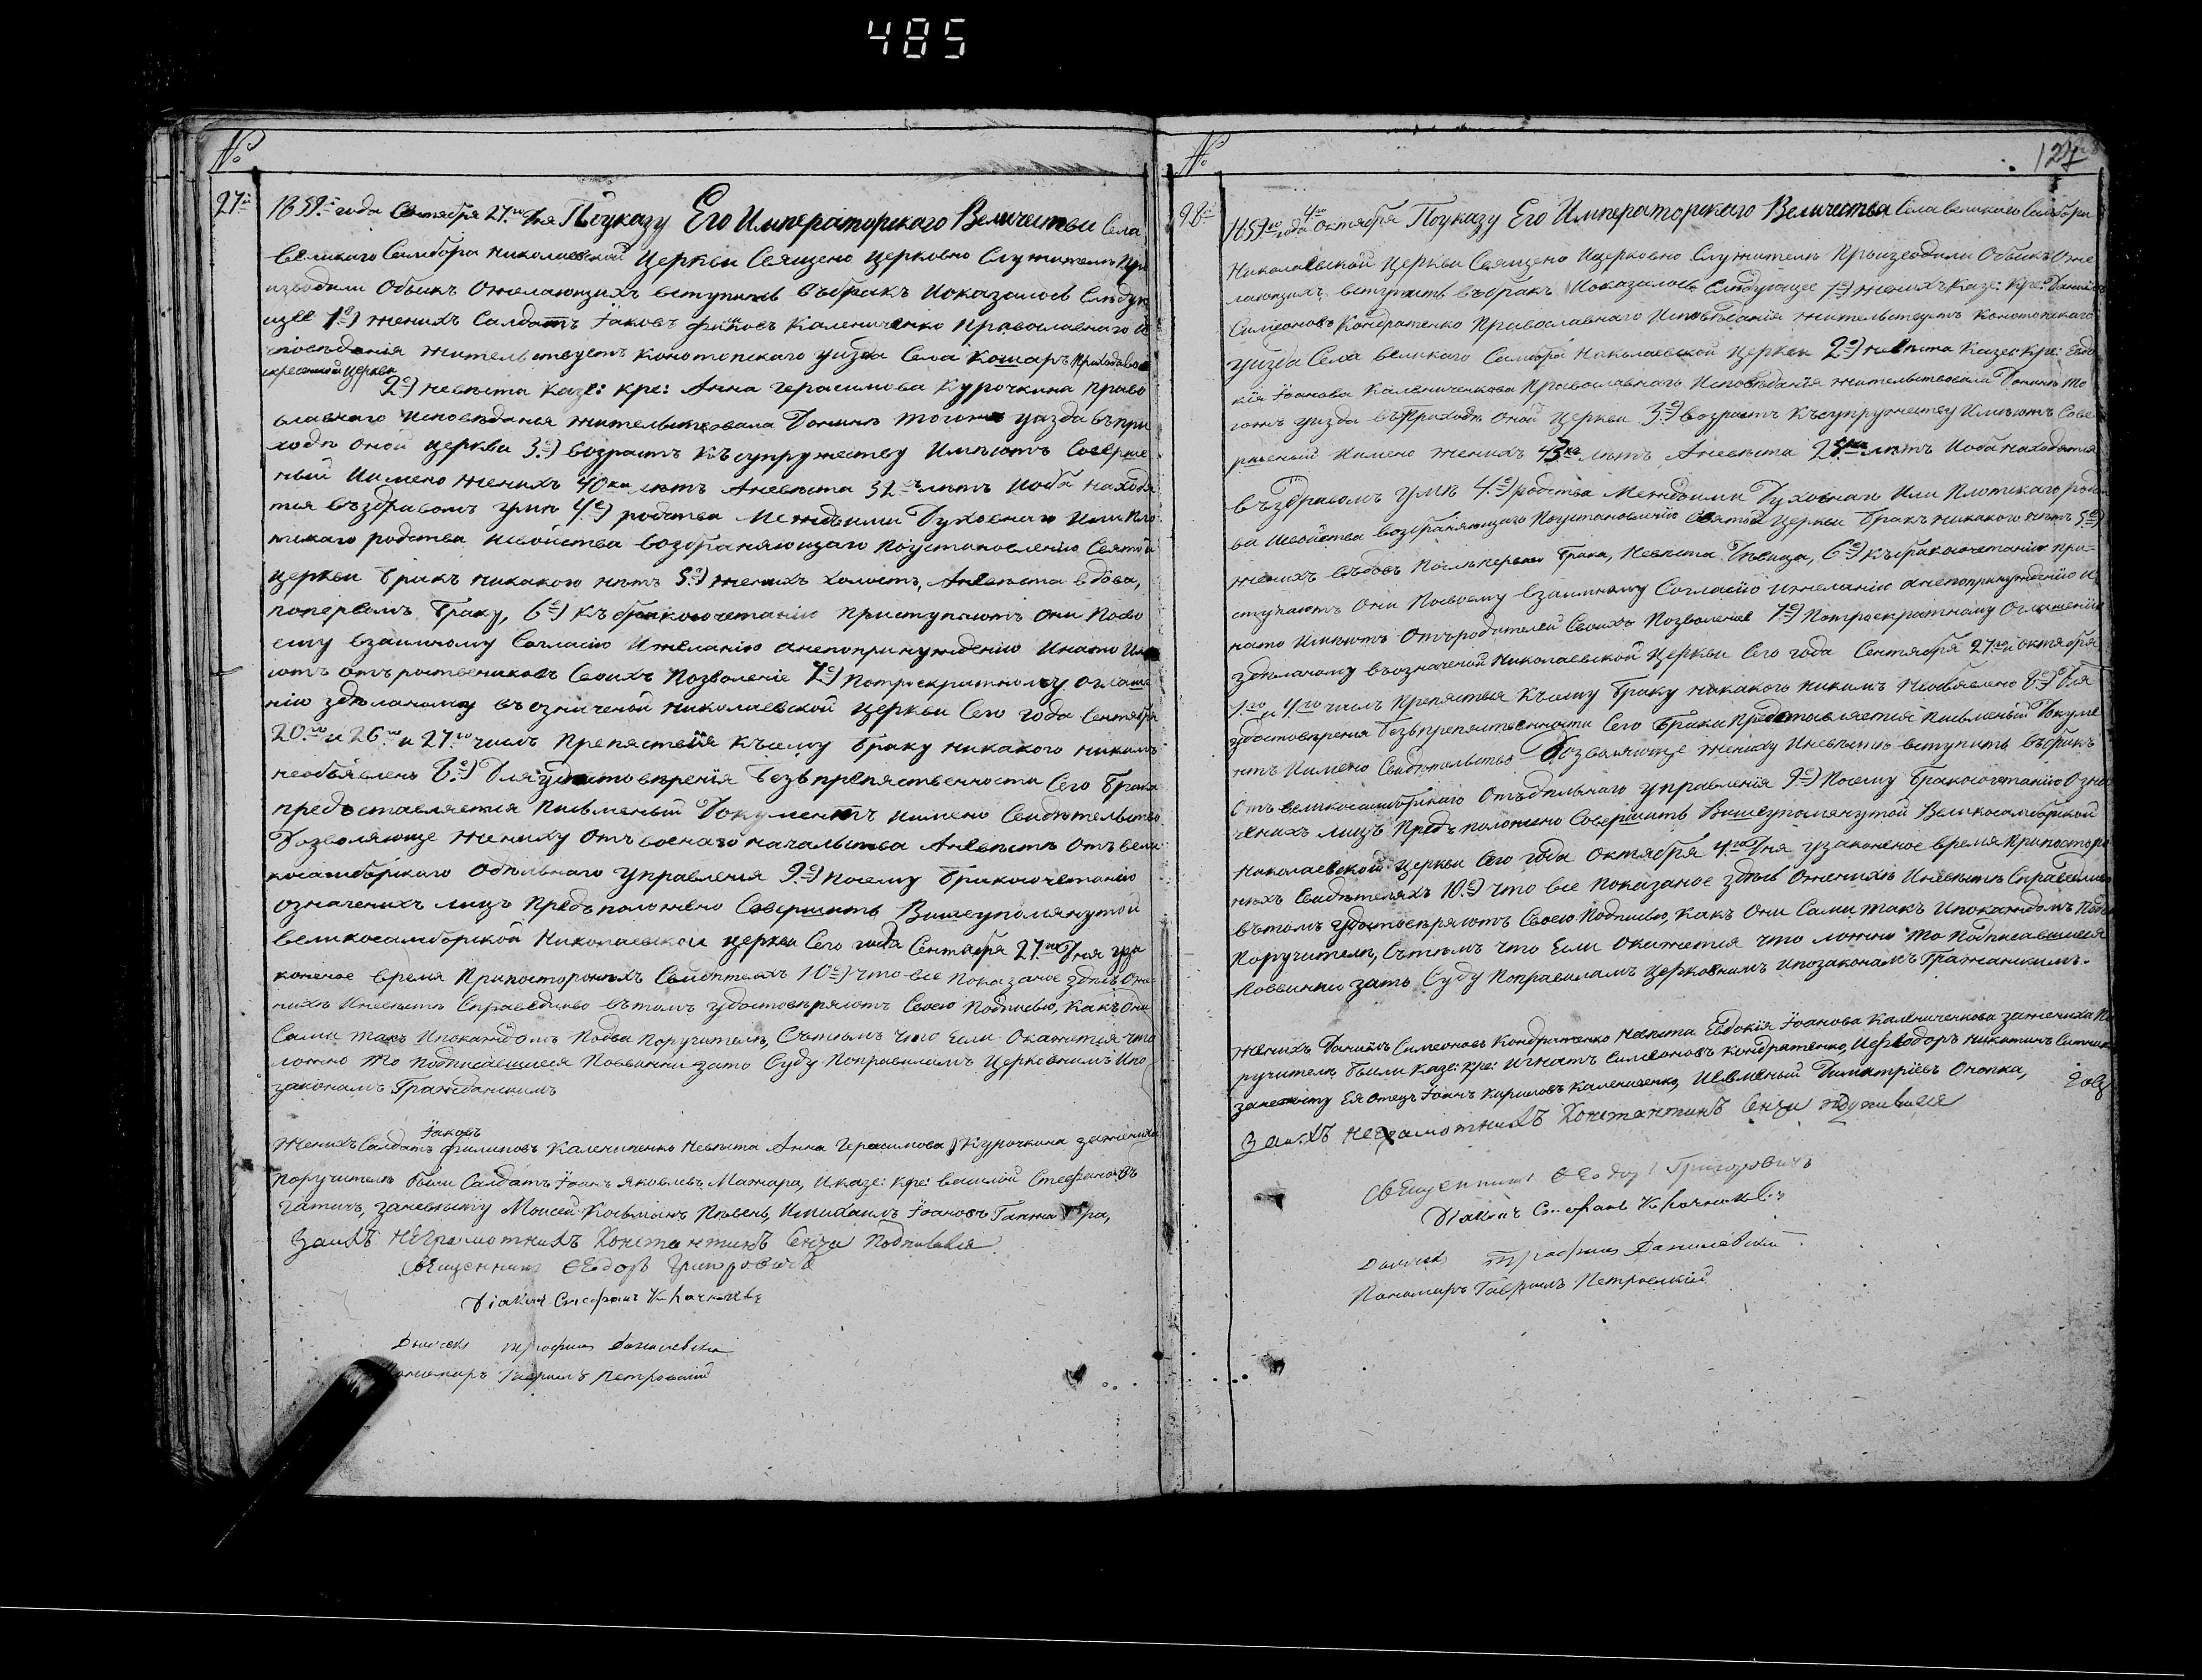 485
№
27й
1859го года Сентября 27го дня Поуказу Его Императорскаго Величества Села
Великаго Самбора Николаевской Церкви Священо Церковно Служители Про
изводили Обыск Ожелающихъ вступить въбракъ Ипоказалось Слѣдую
щее 1е) женихъ Салдатъ Іаковъ Филиповъ Калениченко Православнаго И
споведанія жительствуетъ Конотопскаго уизда Села Кошаръ Приходавос
кресенской Церкви
2е) невѣста Казе: кре: Анна Герасимова Курочкина право
славнаго Исповѣданья жительствовала Донинѣ тогоже уизда въпри
ходѣ оной Церкви 3е) возрастъ Къ супружеству Имѣютъ Соверше
ный Имено женихъ 40ка лѣтъ Аневѣста 32хъ лѣтъ Иоба находя
тся въздравомъ умѣ 4е) родства Междъими Духовнаго Или Пло
тскаго родства Исвойства возбраняющаго Поустановленію Святой
Церкви бракъ никакого нѣтъ 5е) женихъ холостъ, Аневѣста вдова,
попервомъ браку, 6е) Къбракосочетанію приступаютъ Они Посво
ему взаимному Согласію Ижеланію анепопринужденію Инато Имѣ
ютъ отъ роствениковъ Своихъ Позволеніе 7е) Потроекратному оглаше
нію здѣланому въозначеной Николаевской Церкви Сего года Сентября
20го и 26го и 27го числъ Препятствія Къему браку никакого никимъ
необъявлено 8е) Для удостовѣренія безъпрепятственности Сего брака
предъставляется письменый Документъ имено Свидѣтельство
Дозволяюще жениху Отъ военаго начальства Аневѣстѣ Отъ вели
косамборскаго Отдѣльнаго управленія 9е) Посему бракосочетанію
означенихъ лицъ предъположено Совершить Вишеупомянутой
великосамборской Николаевской церкви Сего года Сентября 27го Дня уза
коненое время Припосторонихъ Свидѣтеляхъ 10е) что все показаное здѣсь Оже
нихѣ Иневѣстѣ Справедливо вътомъ удостовѣряютъ Своею Подписью, Какъ Они
Сами такъ Ипокаждомъ Подва Поручителя, Сътѣмъ что Если Окажется что
ложно то подписавшиеся Повинни зато Суду Поправиламъ Церковнимъ Ипо
законамъ Гражданскимъ
Іаковъ
Женихъ Салдатъ Филиповъ Калениченко Невѣста Анна Герасимова Курочкина зажениха
поручители были Салдатъ Іоанъ Яковлевъ Мажара, Иказе: кре: Василій Стефановъ
заневѣсту Моисей Косьминъ Пѣвень, Имихаилъ Іоановъ
Заихъ неграмотнихъ Константинъ Сенча подписался
Священникъ Феодоръ Григоровичъ
Діаконъ Стефанъ
Дьячекъ Трофимъ Данилевскій
Пономаръ Гавриилъ Петровскій
№
127
28й
1859го года Октября 4го Поуказу Его Императорскаго Величества Села великаго Самбора
Николаевской Церкви Священо Ицерковно Служители Производили Обыскъ Оже
лающихъ вступить въбракъ Ипоказалось Слѣдующее 1е) женихъ Казе: Кре: Даниилъ
Симеоновъ Кондратенко Православнаго Исповѣданія жительствуетъ Конотопскаго
уизда Села великаго Самбора Николаевской Церкви 2е) невѣста Казе: Кре: Евдо
кія Іоанова Калениченкова Православнаго Исповѣданія жительствовала Донинѣ то
гожъ уизда въприходѣ оной Церкви 3е) возрастъ Къ супружеству Имѣютъ Сове
ршеный Имено женихъ 43 лѣтъ Аневѣста лѣтъ Иоба находятся
въздравомъ умѣ 4е) родства Междъими Духовнаго Или Плотскаго родст
ва Исвойства возбраняющаго Поустановленію Святой Церкви бракъ никакого нѣтъ 5е)
женихъ вдовъ Послѣперваго брака, Невѣста Дѣвица, 6е) Къбракосочетанію при-
ступаютъ Они Посвоему взаимному Согласію Ижеланію анепопринужденію И
нато Имѣютъ Отъродителей Своихъ Позволеніе 7е) Потроекратному Оглашенію
здѣланому въозначеной Николаевской Церкви Сего года Сентября 27го и октября
1го и 4го числъ Препятствія Къему браку никакого никимъ Необъявлено 8е) Для
удостовѣренія безъпрепятственности Сего брака Представляется Письменый Докуме
нтъ Имено Свидѣтельство Дозволяюще жениху Иневѣстѣ вступить въбракъ
Отъ великосамборскаго Отъдѣльнаго управленія 9е) Посему бракосочетанію Озна
ченихъ лицъ Предъположено Совершить Вишеупомянутой Великосамборской
Николаевской Церкви Сего года Октября 4го Дня узаконеное время Припосторо
нихъ Свидѣтеляхъ 10е) что все показаное здѣсь Оженихѣ Иневѣстѣ Справедливо
вътомъ удостовѣряютъ Своею Подписью, Какъ Они Сами такъ Ипокаждомъ Подва
Поручителя, Сътѣмъ что Если Окажется что ложно то Подписавшиеся
Повинни зато Суду Поправиламъ Церковнимъ Ипозаконамъ Гражданскимъ.
Женихъ Даниилъ Симеоновъ Кондратенко Невѣста Евдокія Іоанова Калениченкова зажениха По
ручители были Казе: кре: Игнатъ Симеоновъ Кондратенко, Ифеодоръ Никитинъ
заневѣсту Ея отецъ Іоанъ Кириловъ Калениченко, Димитріевъ Онопка,
Заихъ неграмотнихъ Константинъ Сенча подписался
Священникъ Феодоръ Григоровичъ
Діаконъ Стефанъ
Дьячекъ Трофимъ Данилевскій
Пономаръ Гавриилъ Петровскій